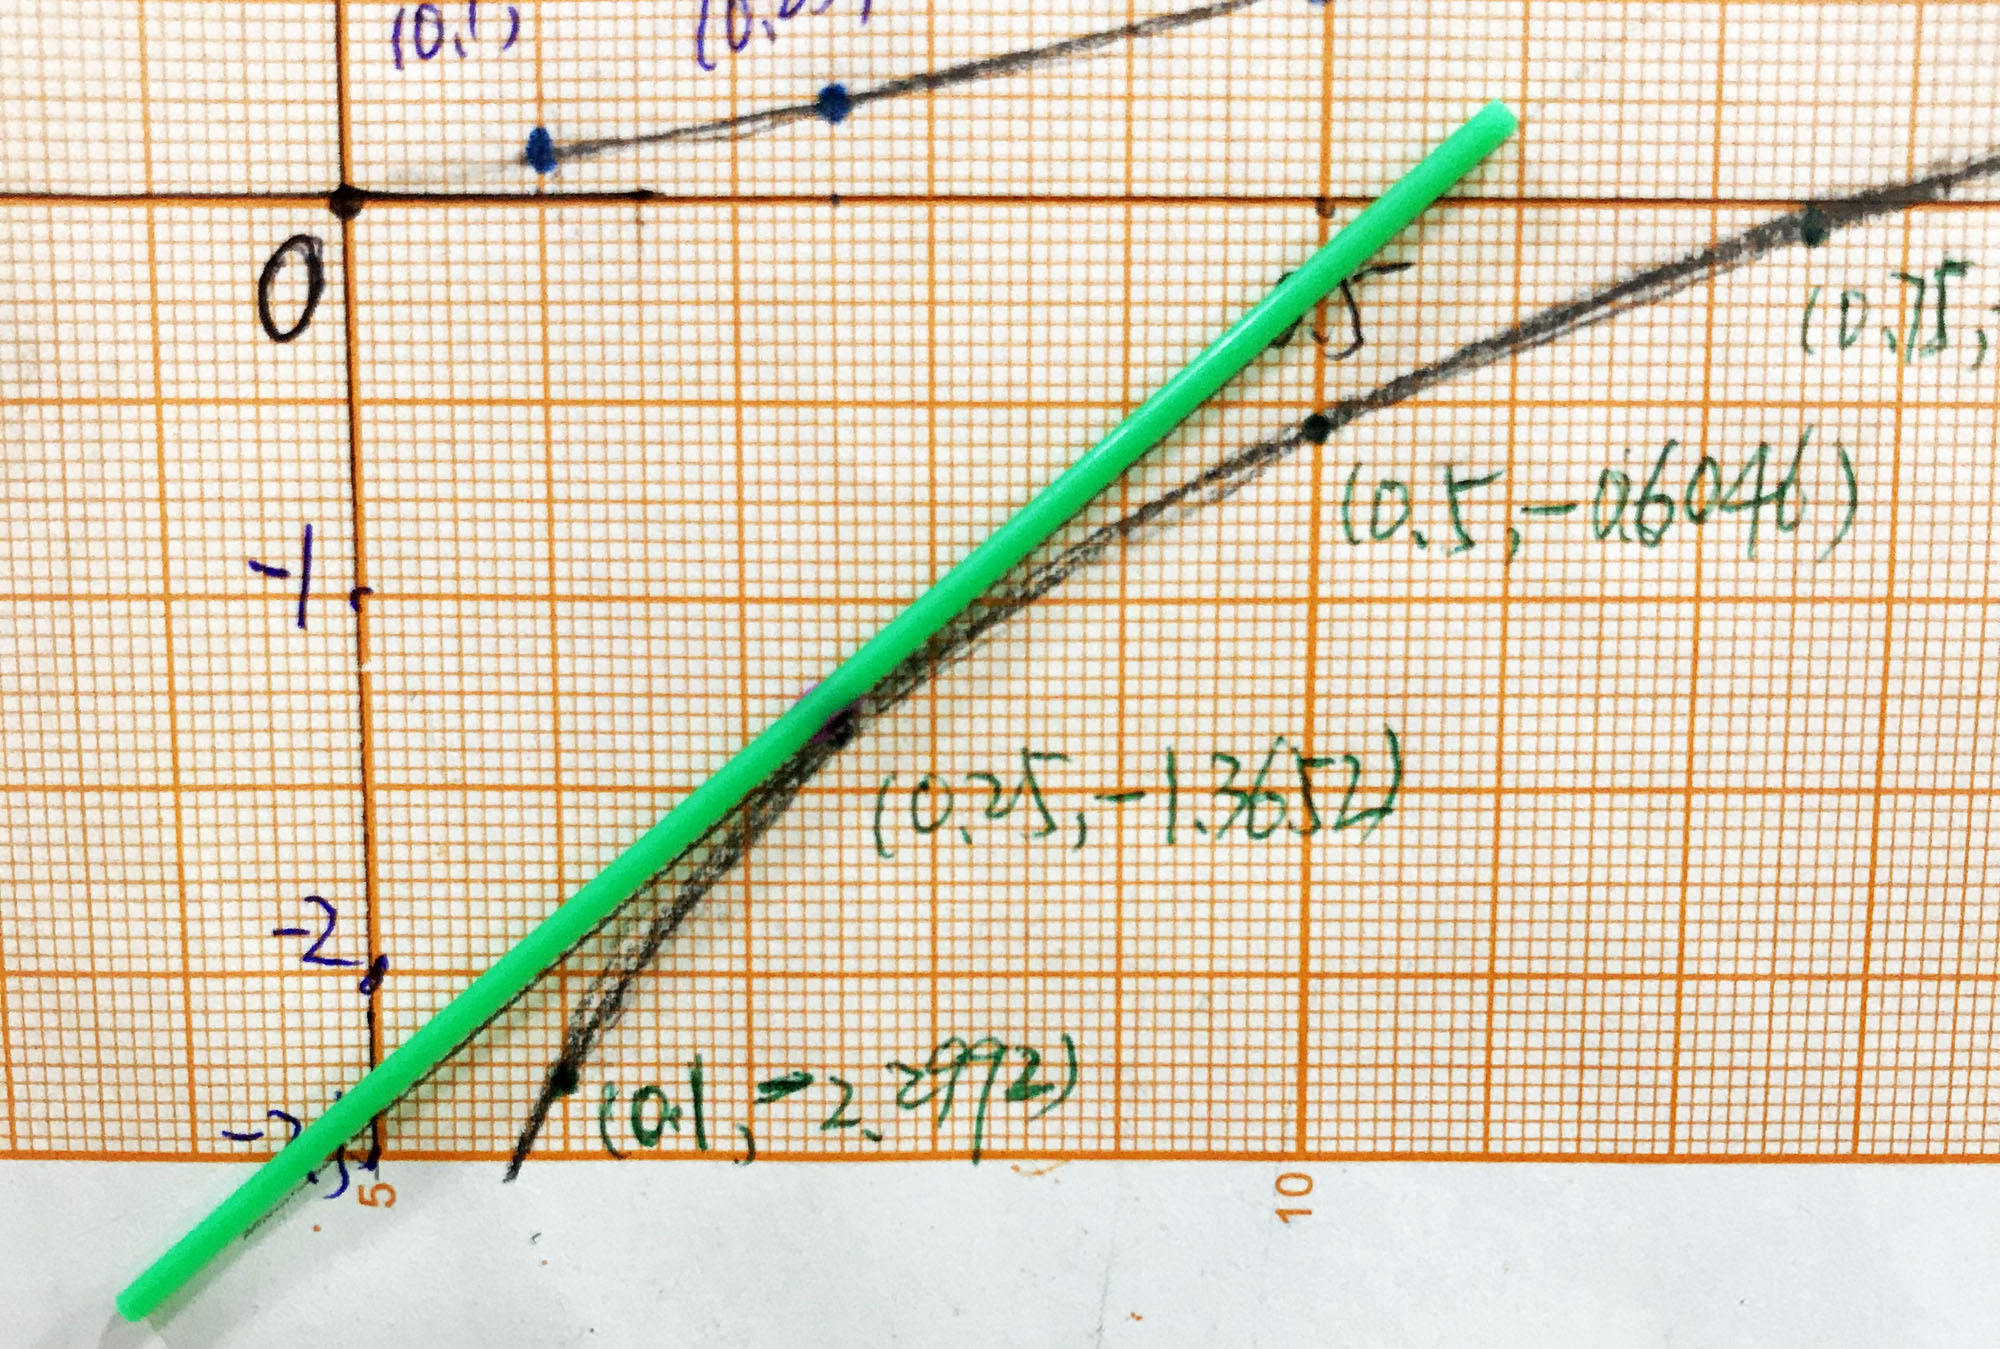 (0.1,
0
0.5
(0.75,
-1
(0.5, -0.6046)
(0.25, -1.3652)
-2
(0.1, -2.2992)
5
10